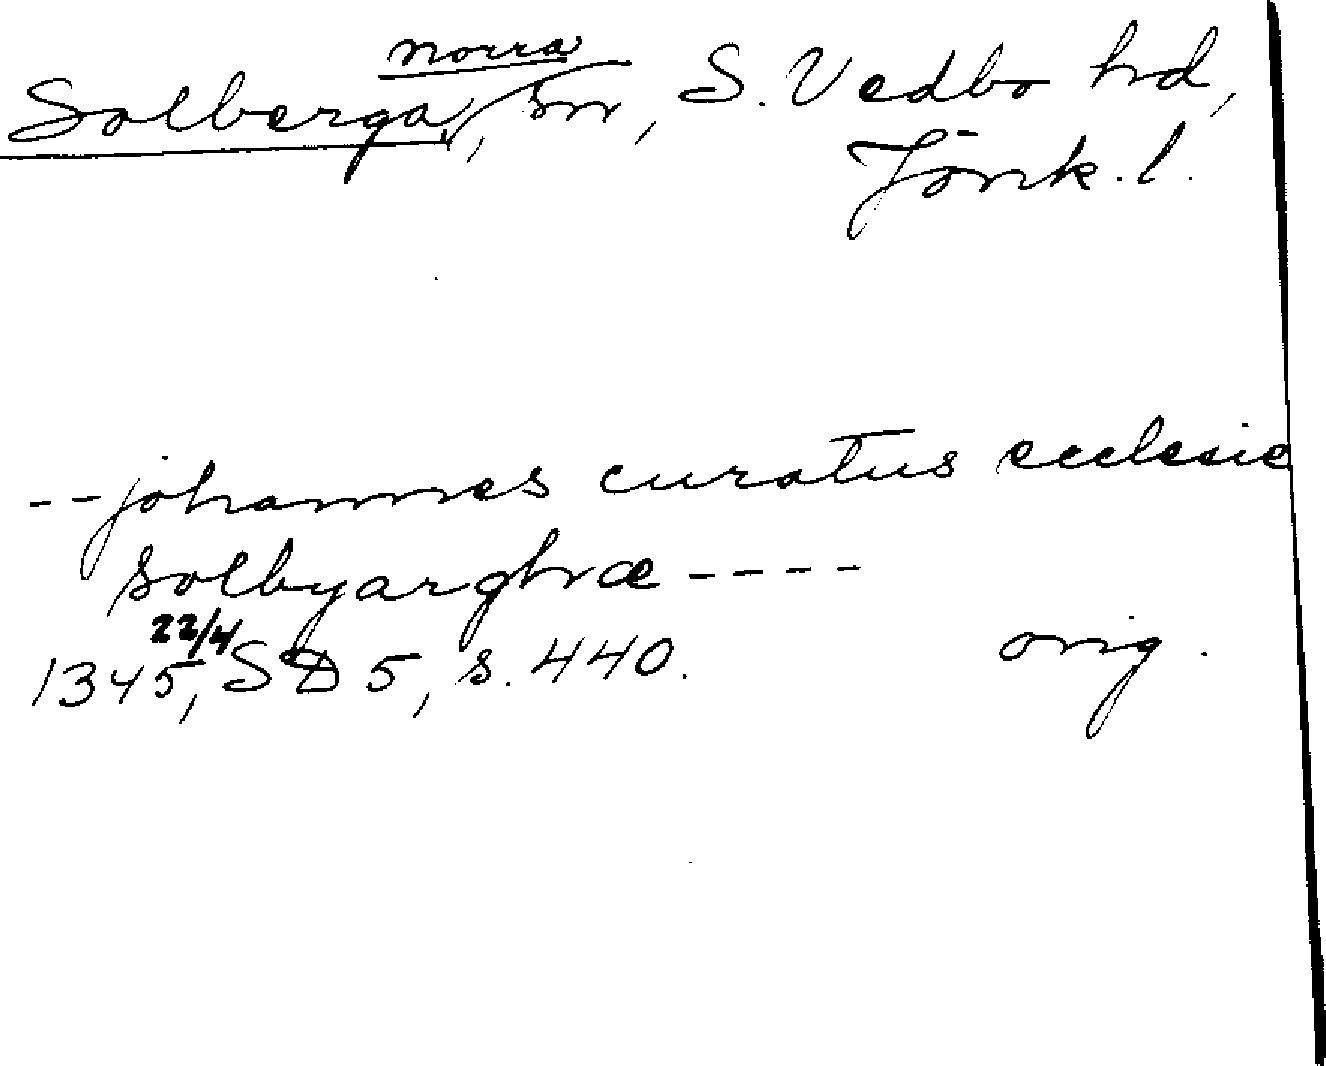 Solberga, norra, sn, S. Vedbo hd,
Jönk. l.
--johannes curatus ecclesie
solbyarghæ ----
1345 22/4, SD 5, s. 440. orig.